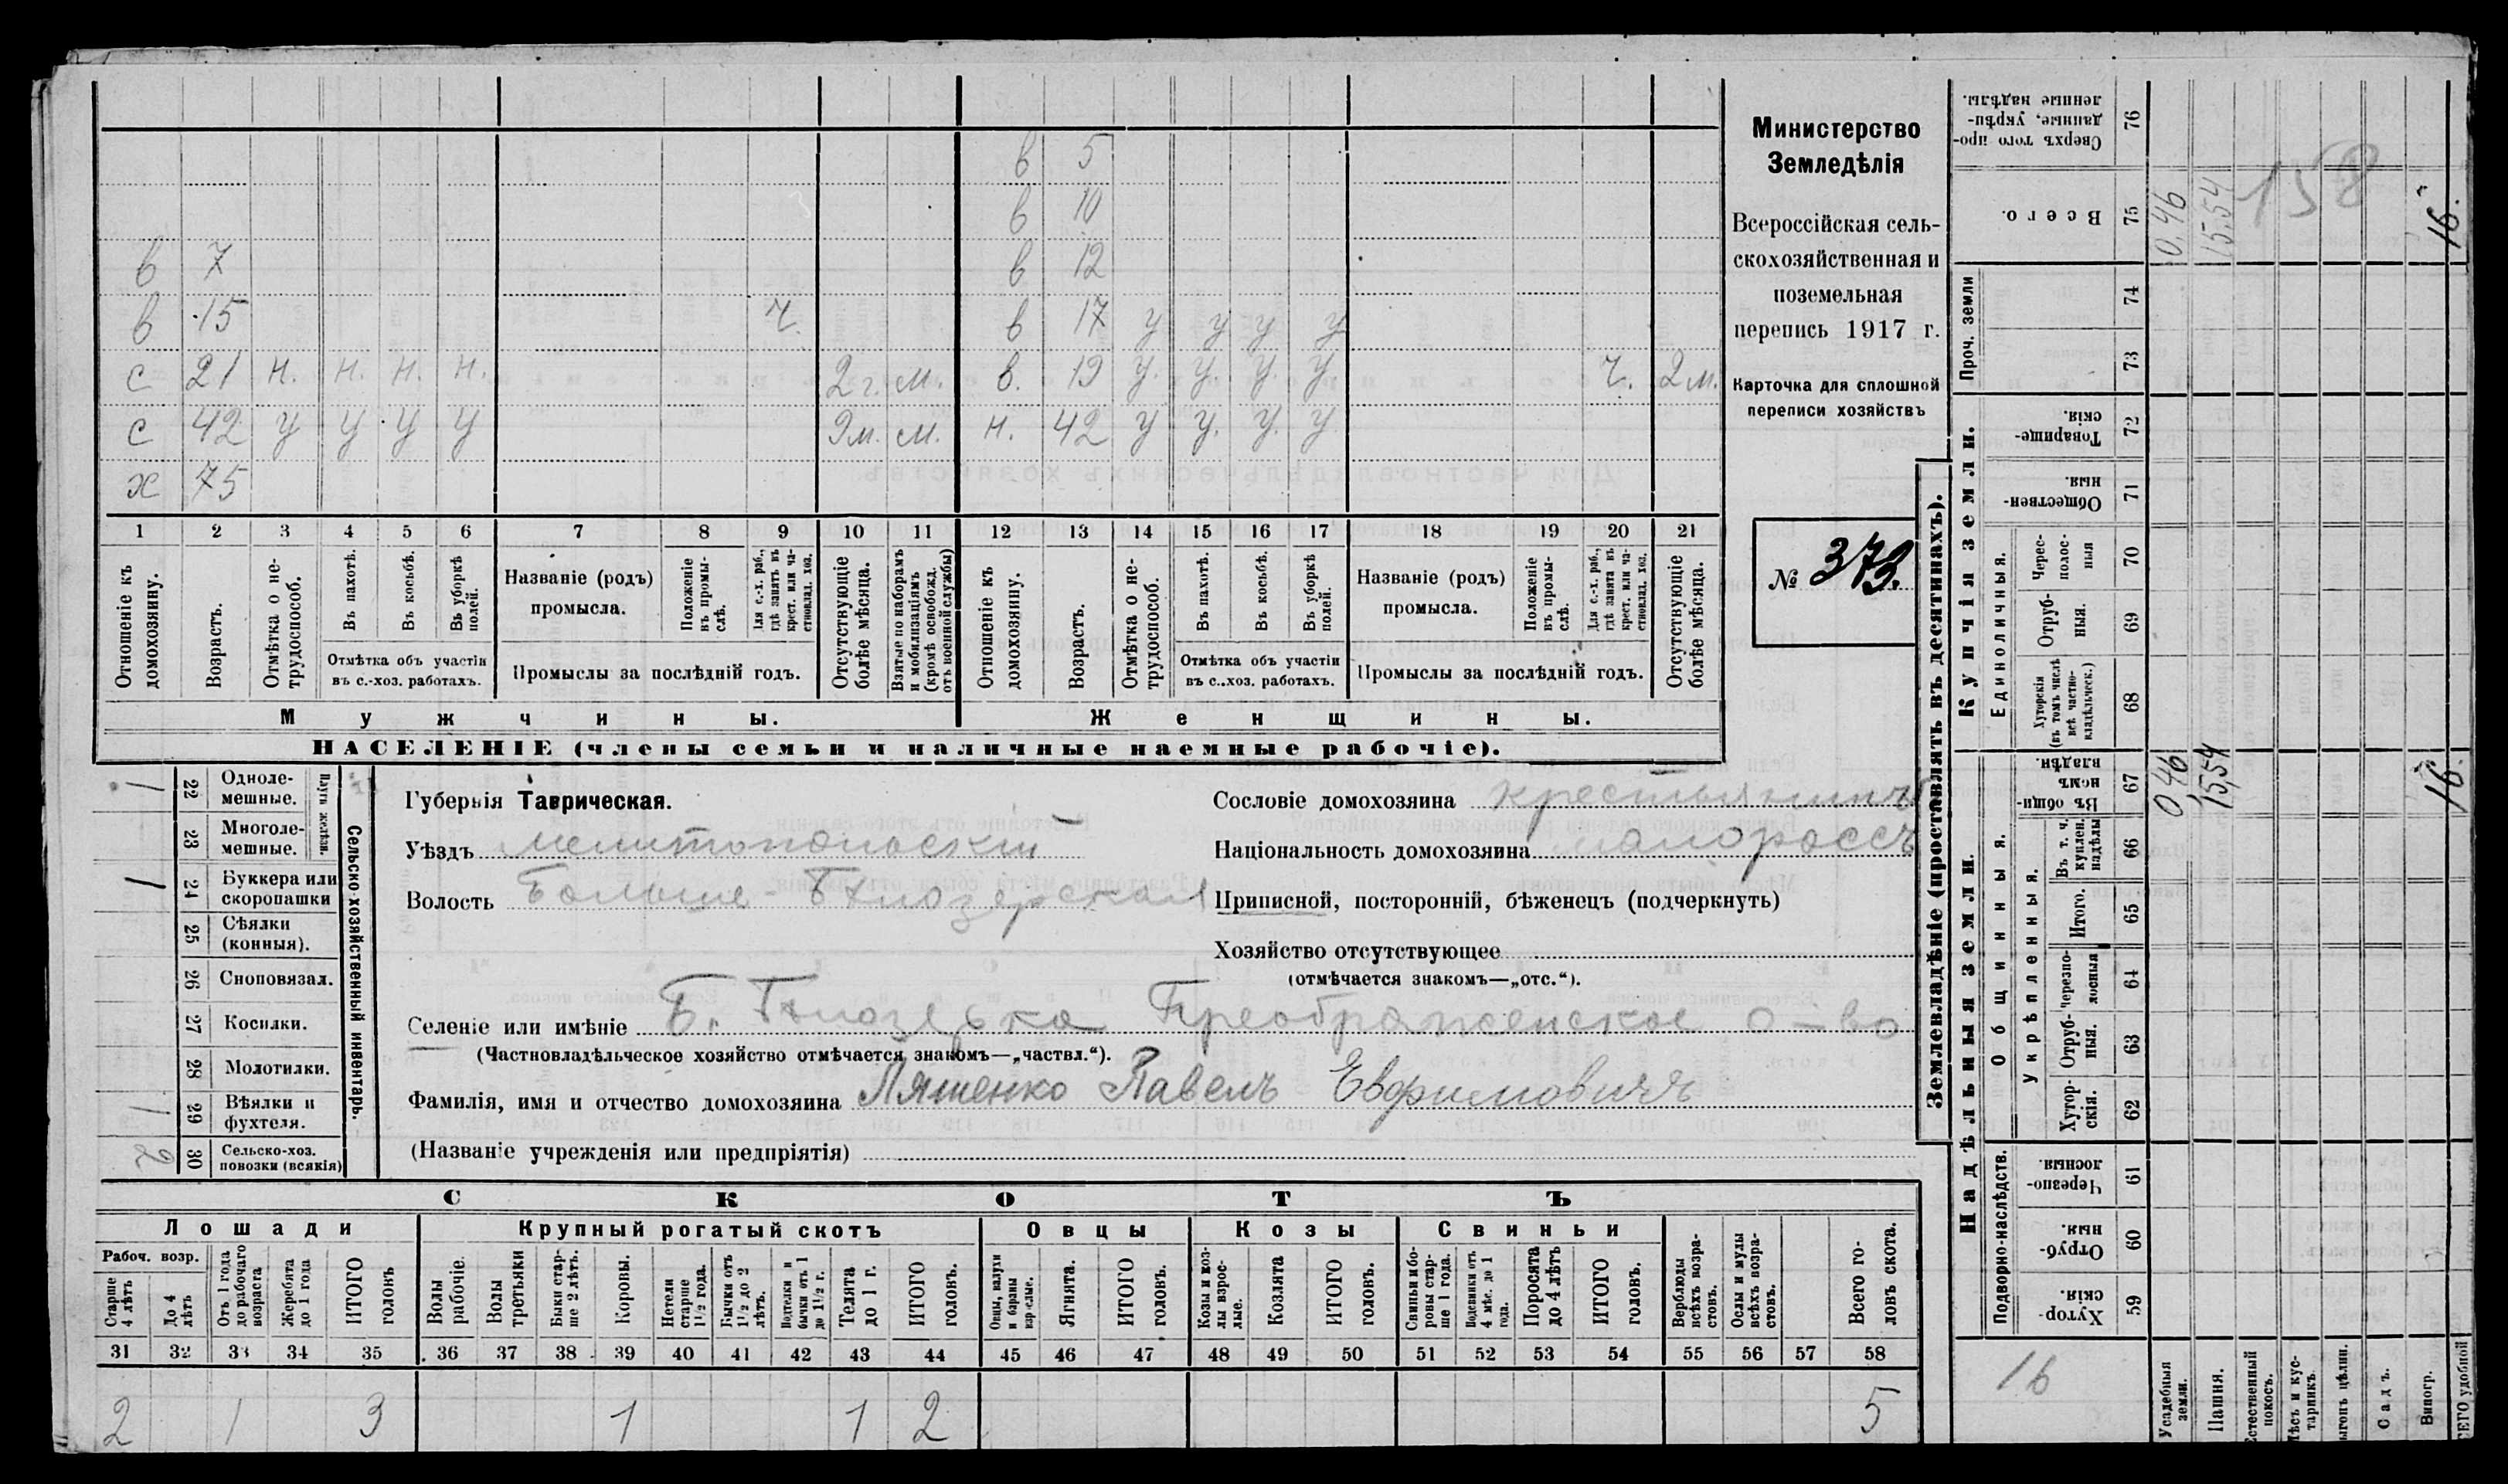 в 5
в 10
в 7 в 12
в 15 ч. в 17 у у у у
с 21 н. н. н. н. 2 г. м. в. 19 у. у. у. у ч. 2 м.
с 42 у у у у 9м. м. н. 42 у у. у. у
х 75
1 2 3 4 5 6 7 8 9 10 11 12 13 14 15 16 17 18 19 20 21
Отношеніе къ домохозяину.
Возрастъ.
Отмѣтка о не-трудоспособ.
Въ пахотѣ.
Въ косьбѣ.
Въ уборкѣ полей.
Отмѣтка объ участіи
въ с.-хоз. работахъ.
Названіе (родъ)
промысла.
Положеніе въ промы-слѣ.
Для с.-х. раб., гдѣ занятъ въ крест. или ча-стновлад. хоз.
Промыслы за послѣдній годъ.
Отсутствующіе болѣе мѣсяца.
Взятые по наборамъ и мобилизаціямъ (кромѣ освобожд. отъ военной службы)
Отношеніе къ домохозяину.
Возрастъ.
Отмѣтка о не-трудоспособ.
Въ пахотѣ.
Въ косьбѣ.
Въ уборкѣ полей.
Отмѣтка объ участіи
въ с..хоз. работахъ.
Названіе (родъ)
промысла.
Положеніе въ промы-слѣ.
Для с.-х. раб., гдѣ занята въ крест. или ча-стновлад. хоз.
Промыслы за послѣдній годъ.
Отсутствующіе болѣе мѣсяца.
Мужчины.
Женщины.
НАСЕЛЕНІЕ (члены семьи и наличные наемные рабочіе).
Министерство
Земледѣлія
Всероссійская сель-
скохозяйственная и
поземельная
перепись 1917 г.
Карточка для сплошной
переписи хозяйствъ
№ 373.
1 22 Одноле-мешные.
23 Многоле-мешные.
Плуги желѣзн.
1 24 Буккера или скоропашки
25 Сѣялки (конныя).
26 Сноповязал.
27 Косилки.
28 Молотилки.
1 29 Вѣялки и фухтеля.
2 30 Сельско-хоз. повозки (всякія)
Сельско-хозяйственный инвентарь.
Губернія Таврическая.
Уѣздъ Мелитопольскій
Волость Больше-Бѣлозерская
Сословіе домохозяина крестьянинъ
Національность домохозяина малороссъ
Приписной, посторонній, бѣженецъ (подчеркнуть)
Хозяйство отсутствующее
(отмѣчается знакомъ—„отс.“).
Селеніе или имѣніе Б. Бѣлозерка Преображенское о-во
(Частновладѣльческое хозяйство отмѣчается знакомъ—„частвл.“).
Фамилія, имя и отчество домохозяина Ляшенко Павелъ Евфимовичъ
(Названіе учрежденія или предпріятія)
СКОТЪ
Лошади Крупный рогатый скотъ Овцы Козы Свиньи
Рабоч. возр.
Старше 4 лѣтъ
До 4 лѣтъ
Отъ 1 года до рабочаго возраста
Жеребята до 1 года
ИТОГО головъ
Волы рабочіе.
Волы третьяки
Быки стар-ше 2 лѣтъ.
Коровы.
Нетели старше 1½ года.
Бычки отъ 1½ до 2 лѣтъ.
Подтелки и бычки отъ 1 до 1½ г.
Телята до 1 г.
ИТОГО головъ.
Овцы, валухи и бараны взрослые.
Ягнята.
ИТОГО головъ.
Козы и коз-лы взрос-лые.
Козлята
ИТОГО головъ.
Свиньи и бо-ровы стар-ше 1 года.
Подсвинки отъ 4 мѣс. до 1 года.
Поросята до 4 лѣтъ
ИТОГО головъ.
Верблюды всѣхъ возра-стовъ.
Ослы и мулы всѣхъ возра-стовъ.
Всего го-ловъ скота.
31 32 33 34 35 36 37 38 39 40 41 42 43 44 45 46 47 48 49 50 51 52 53 54 55 56 57 58
2 1 3 1 1 2 5
Землевладѣніе (проставлять въ десятинахъ).
Купчія земли.
Надѣльныя земли.
Сверхъ того про-данные, укрѣп-ленные надѣлы. 76
Всего. 75 0,46 15,54 16.
158
Проч. земли 74 73
Товарище-скія. 72
Обществен-ныя. 71
Единоличныя.
Черес-полос-ныя 70
Отруб-ныя. 69
Хуторскія (въ томъ числѣ всѣ частно-владѣльческ.) 68
Общинныя.
Въ общи-номъ владѣн. 67 0,46 15,54 16.
Укрѣпленныя.
Въ т. ч. куплен. надѣлы 66
Итого. 65
Черезпо-лосныя 64
Отруб-ныя. 63
Хутор-скія. 62
Подворно-наслѣдств.
Черезпо-лосныя. 61
Отруб-ныя. 60
Хутор-скія. 59
16
Усадебныя земли.
Пашня.
Естественный покосъ.
Лѣсъ и кус-тарникъ.
Выгонъ цѣлин.
Садъ.
Виногр.
ВСЕГО удобной